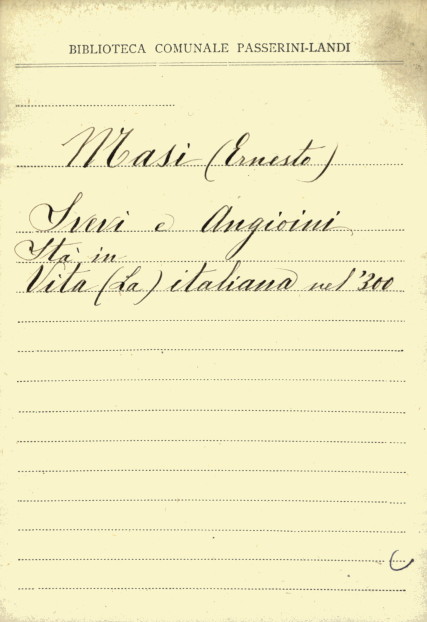 BIBLIOTECA COMUNALE PASSERINI-LANDI
Masi (Ernesto)
Svevi e Angioini
Stà in
Vita (La) italiana nel '300